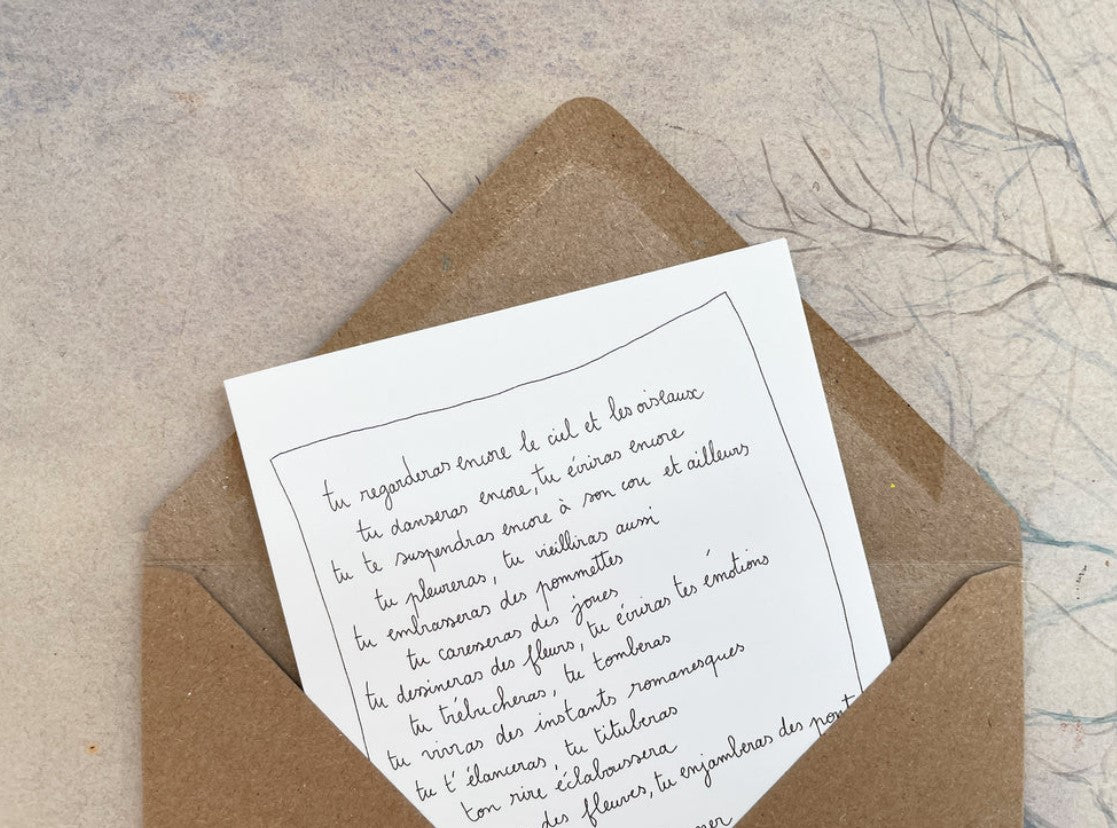 tu regarderas encore le ciel et les oiseaux
tu danseras encore, tu écriras encore
tu te suspendras encore à son cou et ailleurs
tu pleureras, tu vieilliras aussi
tu embrasseras des pommettes
tu caresseras des joues
tu dessineras des fleurs, tu écriras tes émotions
tu trébucheras, tu tomberas
tu vivras des instants romanesques
tu t'élanceras, tu tituberas
ton rire éclaboussera
des fleuves, tu enjamberas des pont